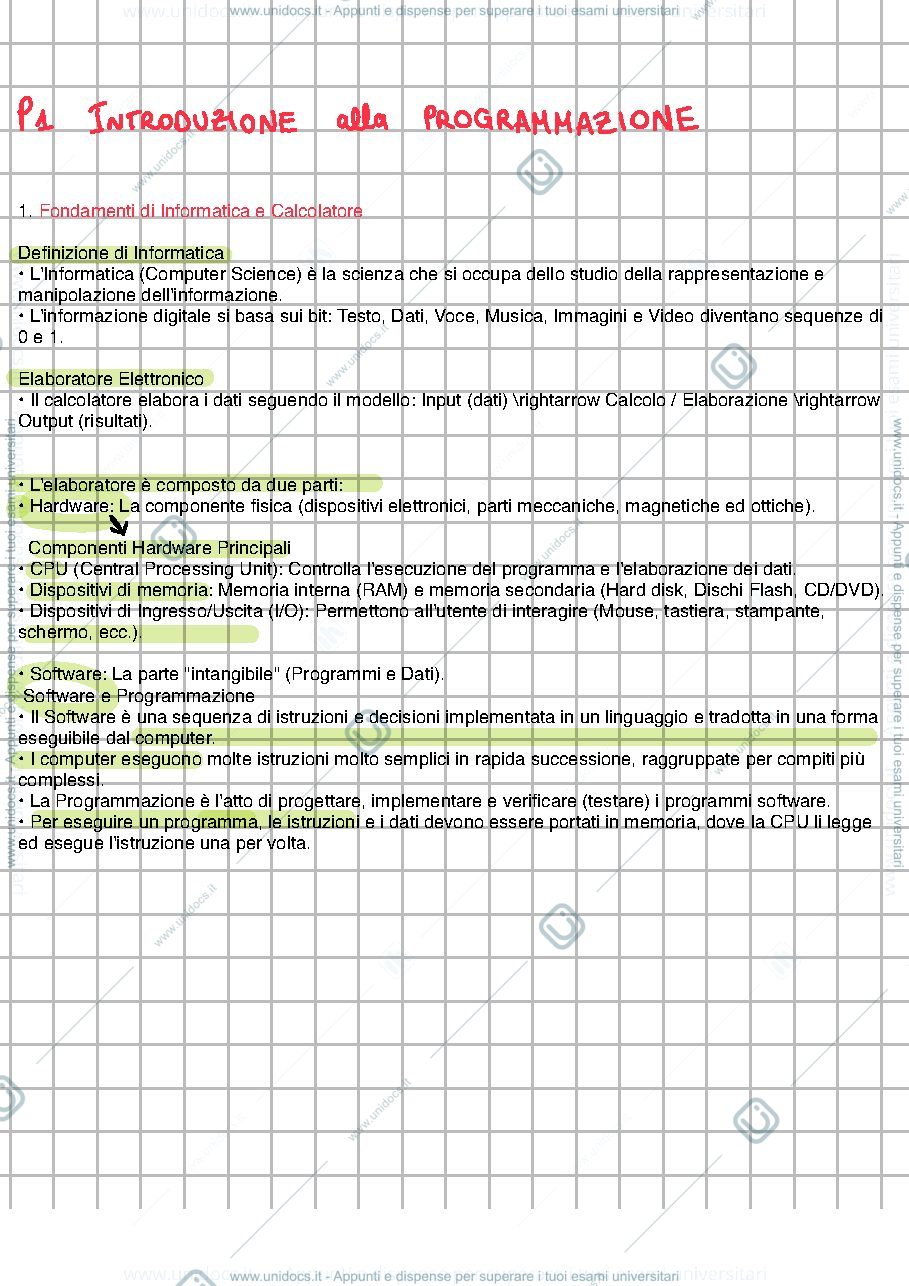 www.unidocs.it - Appunti e dispense per superare i tuoi esami universitari
P1 INTRODUZIONE alla PROGRAMMAZIONE
1. Fondamenti di Informatica e Calcolatore
Definizione di Informatica
• L'Informatica (Computer Science) è la scienza che si occupa dello studio della rappresentazione e
manipolazione dell'informazione.
• L'informazione digitale si basa sui bit: Testo, Dati, Voce, Musica, Immagini e Video diventano sequenze di
0 e 1.
Elaboratore Elettronico
• Il calcolatore elabora i dati seguendo il modello: Input (dati) \rightarrow Calcolo / Elaborazione \rightarrow
Output (risultati).
• L'elaboratore è composto da due parti:
• Hardware: La componente fisica (dispositivi elettronici, parti meccaniche, magnetiche ed ottiche).
Componenti Hardware Principali
• CPU (Central Processing Unit): Controlla l'esecuzione del programma e l'elaborazione dei dati.
• Dispositivi di memoria: Memoria interna (RAM) e memoria secondaria (Hard disk, Dischi Flash, CD/DVD).
• Dispositivi di Ingresso/Uscita (I/O): Permettono all'utente di interagire (Mouse, tastiera, stampante,
schermo, ecc.).
• Software: La parte "intangibile" (Programmi e Dati).
Software e Programmazione
• Il Software è una sequenza di istruzioni e decisioni implementata in un linguaggio e tradotta in una forma
eseguibile dal computer.
• I computer eseguono molte istruzioni molto semplici in rapida successione, raggruppate per compiti più
complessi.
• La Programmazione è l'atto di progettare, implementare e verificare (testare) i programmi software.
• Per eseguire un programma, le istruzioni e i dati devono essere portati in memoria, dove la CPU li legge
ed esegue l'istruzione una per volta.
www.unidocs.it - Appunti e dispense per superare i tuoi esami universitari